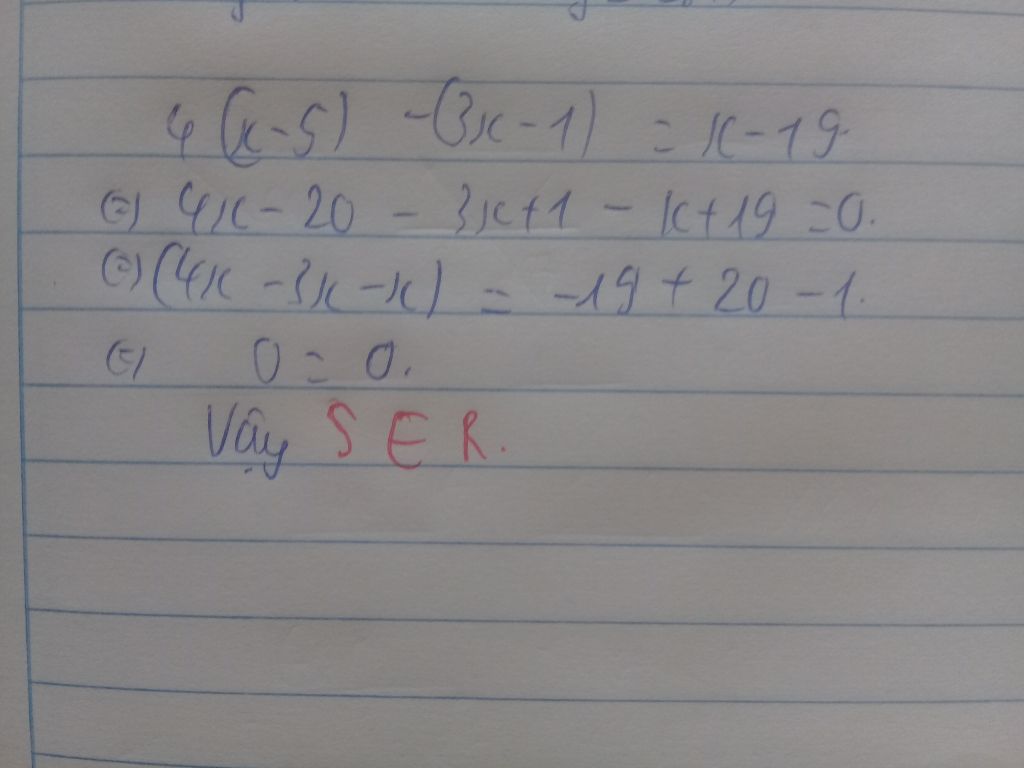 4(x-5) -(3x-1) = x-19
(=) 4x-20 - 3x+1 - x+19 =0.
(=) (4x -3x -x) = -19 + 20 -1.
(=) 0 = 0.
Vậy S ∈ R.